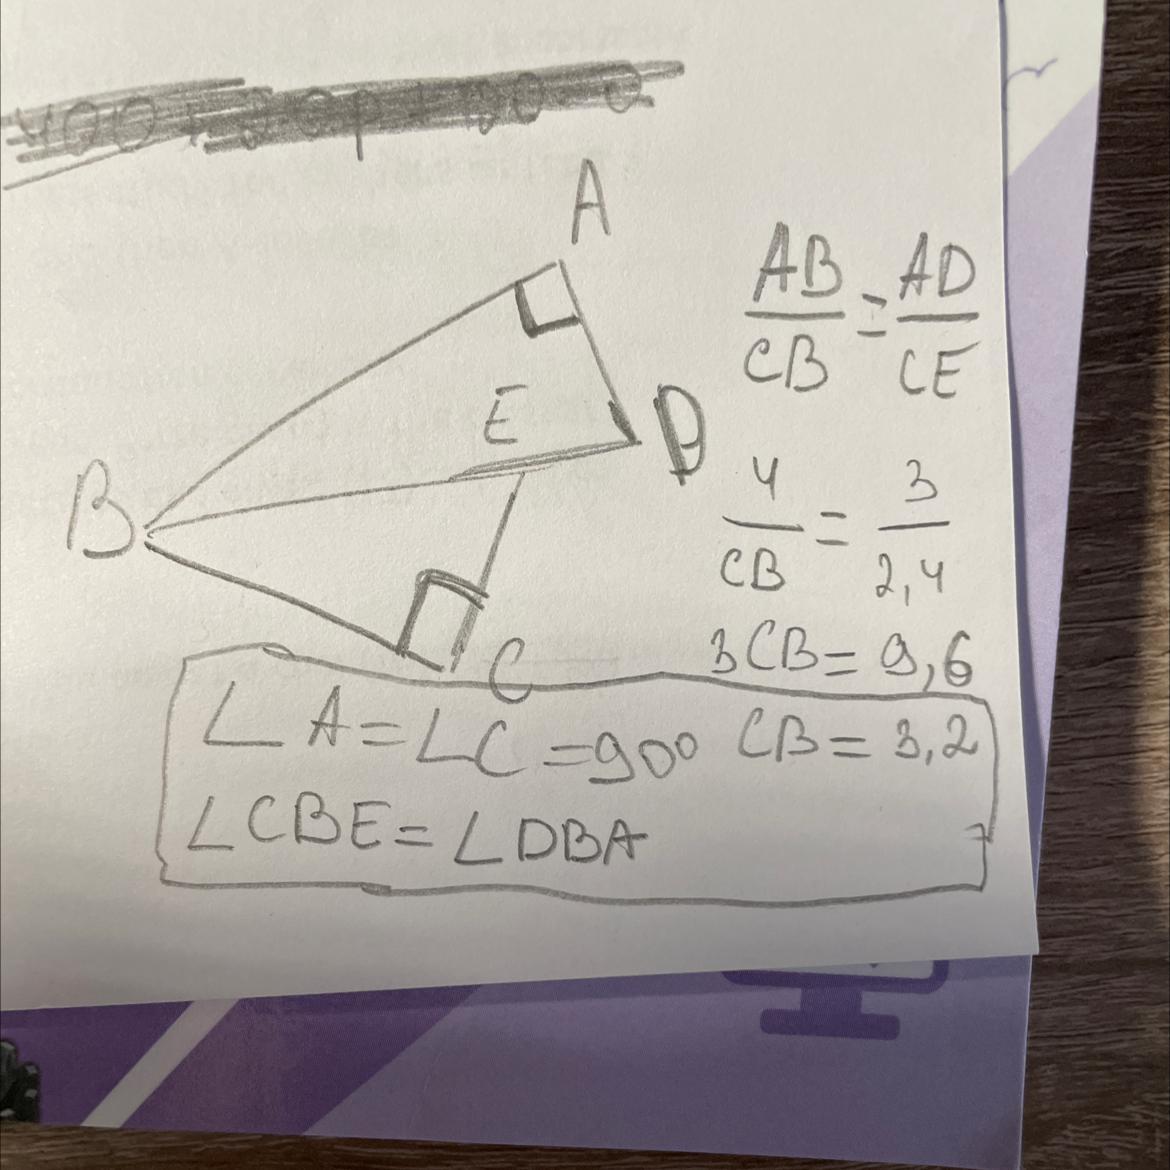 A
E
D
B
C
AB/CB = AD/CE
4/CB = 3/2,4
3CB = 9,6
CB = 3,2
∠A = ∠C = 90°
∠CBE = ∠DBA